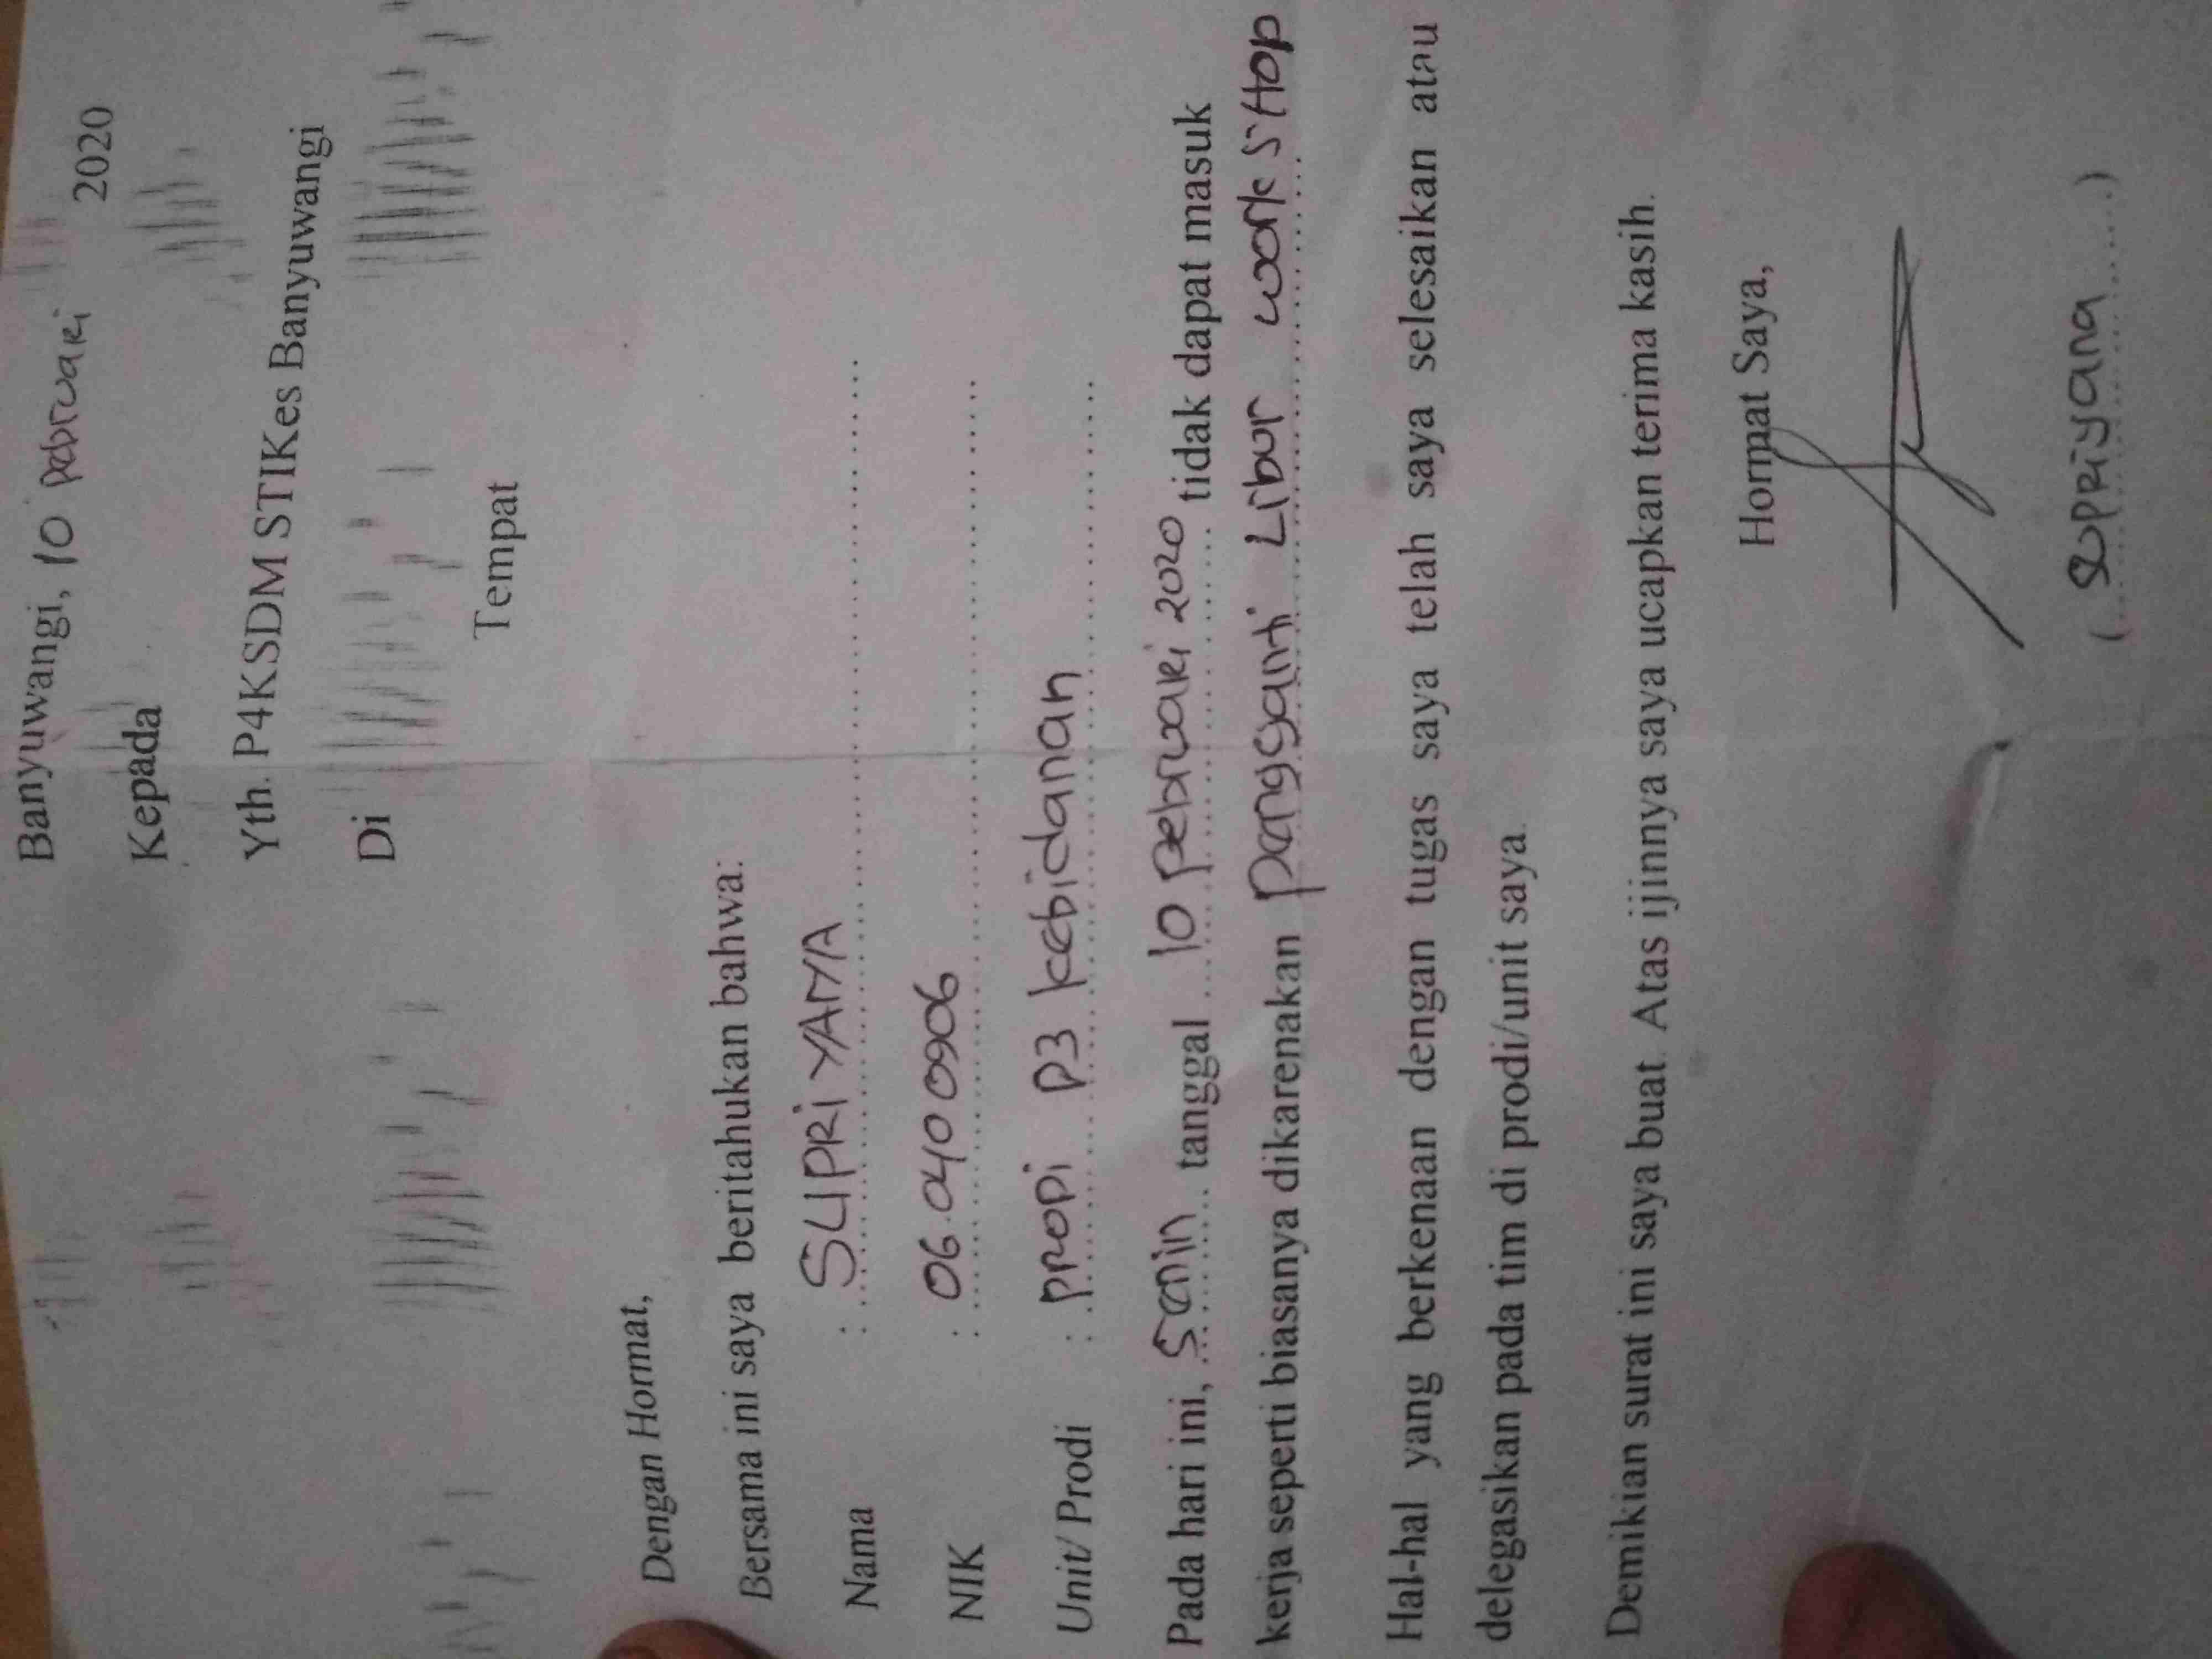 Banyuwangi, 10 Pebruari 2020
Kepada
Yth. P4KSDM STIKes Banyuwangi
Di
Tempat
Dengan Hormat,
Bersama ini saya beritahukan bahwa:
Nama : SUPRiYANA
NIK : 06.040 0906
Unit/ Prodi : PRODi D3 kebidanan
Pada hari ini, Senin tanggal 10 Pebruari 2020 tidak dapat masuk
kerja seperti biasanya dikarenakan Pengganti Libur workSHop
Hal-hal yang berkenaan dengan tugas saya telah saya selesaikan atau
delegasikan pada tim di prodi/unit saya.
Demikian surat ini saya buat. Atas ijinnya saya ucapkan terima kasih.
Hormat Saya,
( SUPRiyana )